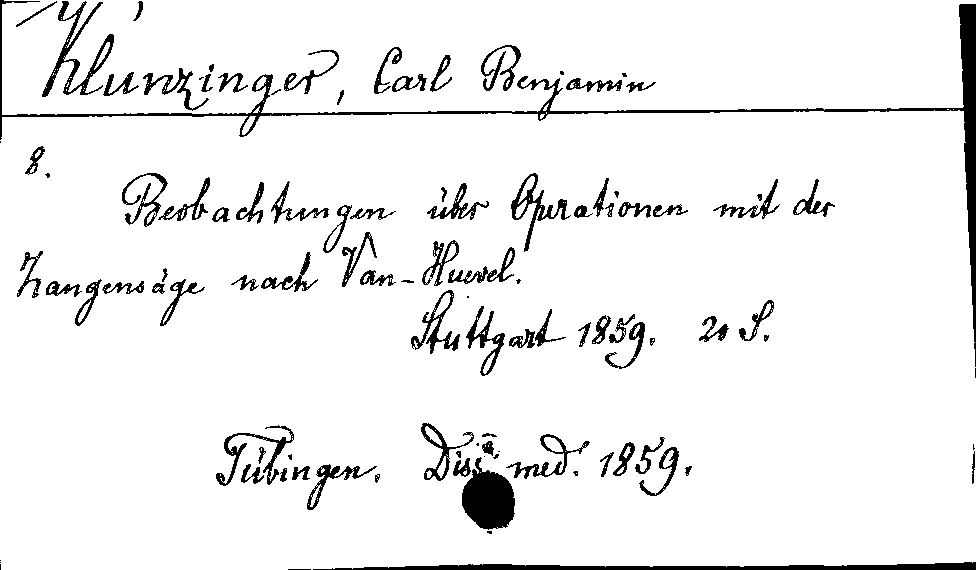 Klunzinger, Carl Benjamin
8.
Beobachtungen über Operationen mit der
Zangensäge nach Van-Huevel.
Stuttgart 1859. 20 S.
Tübingen. Diss. med. 1859.